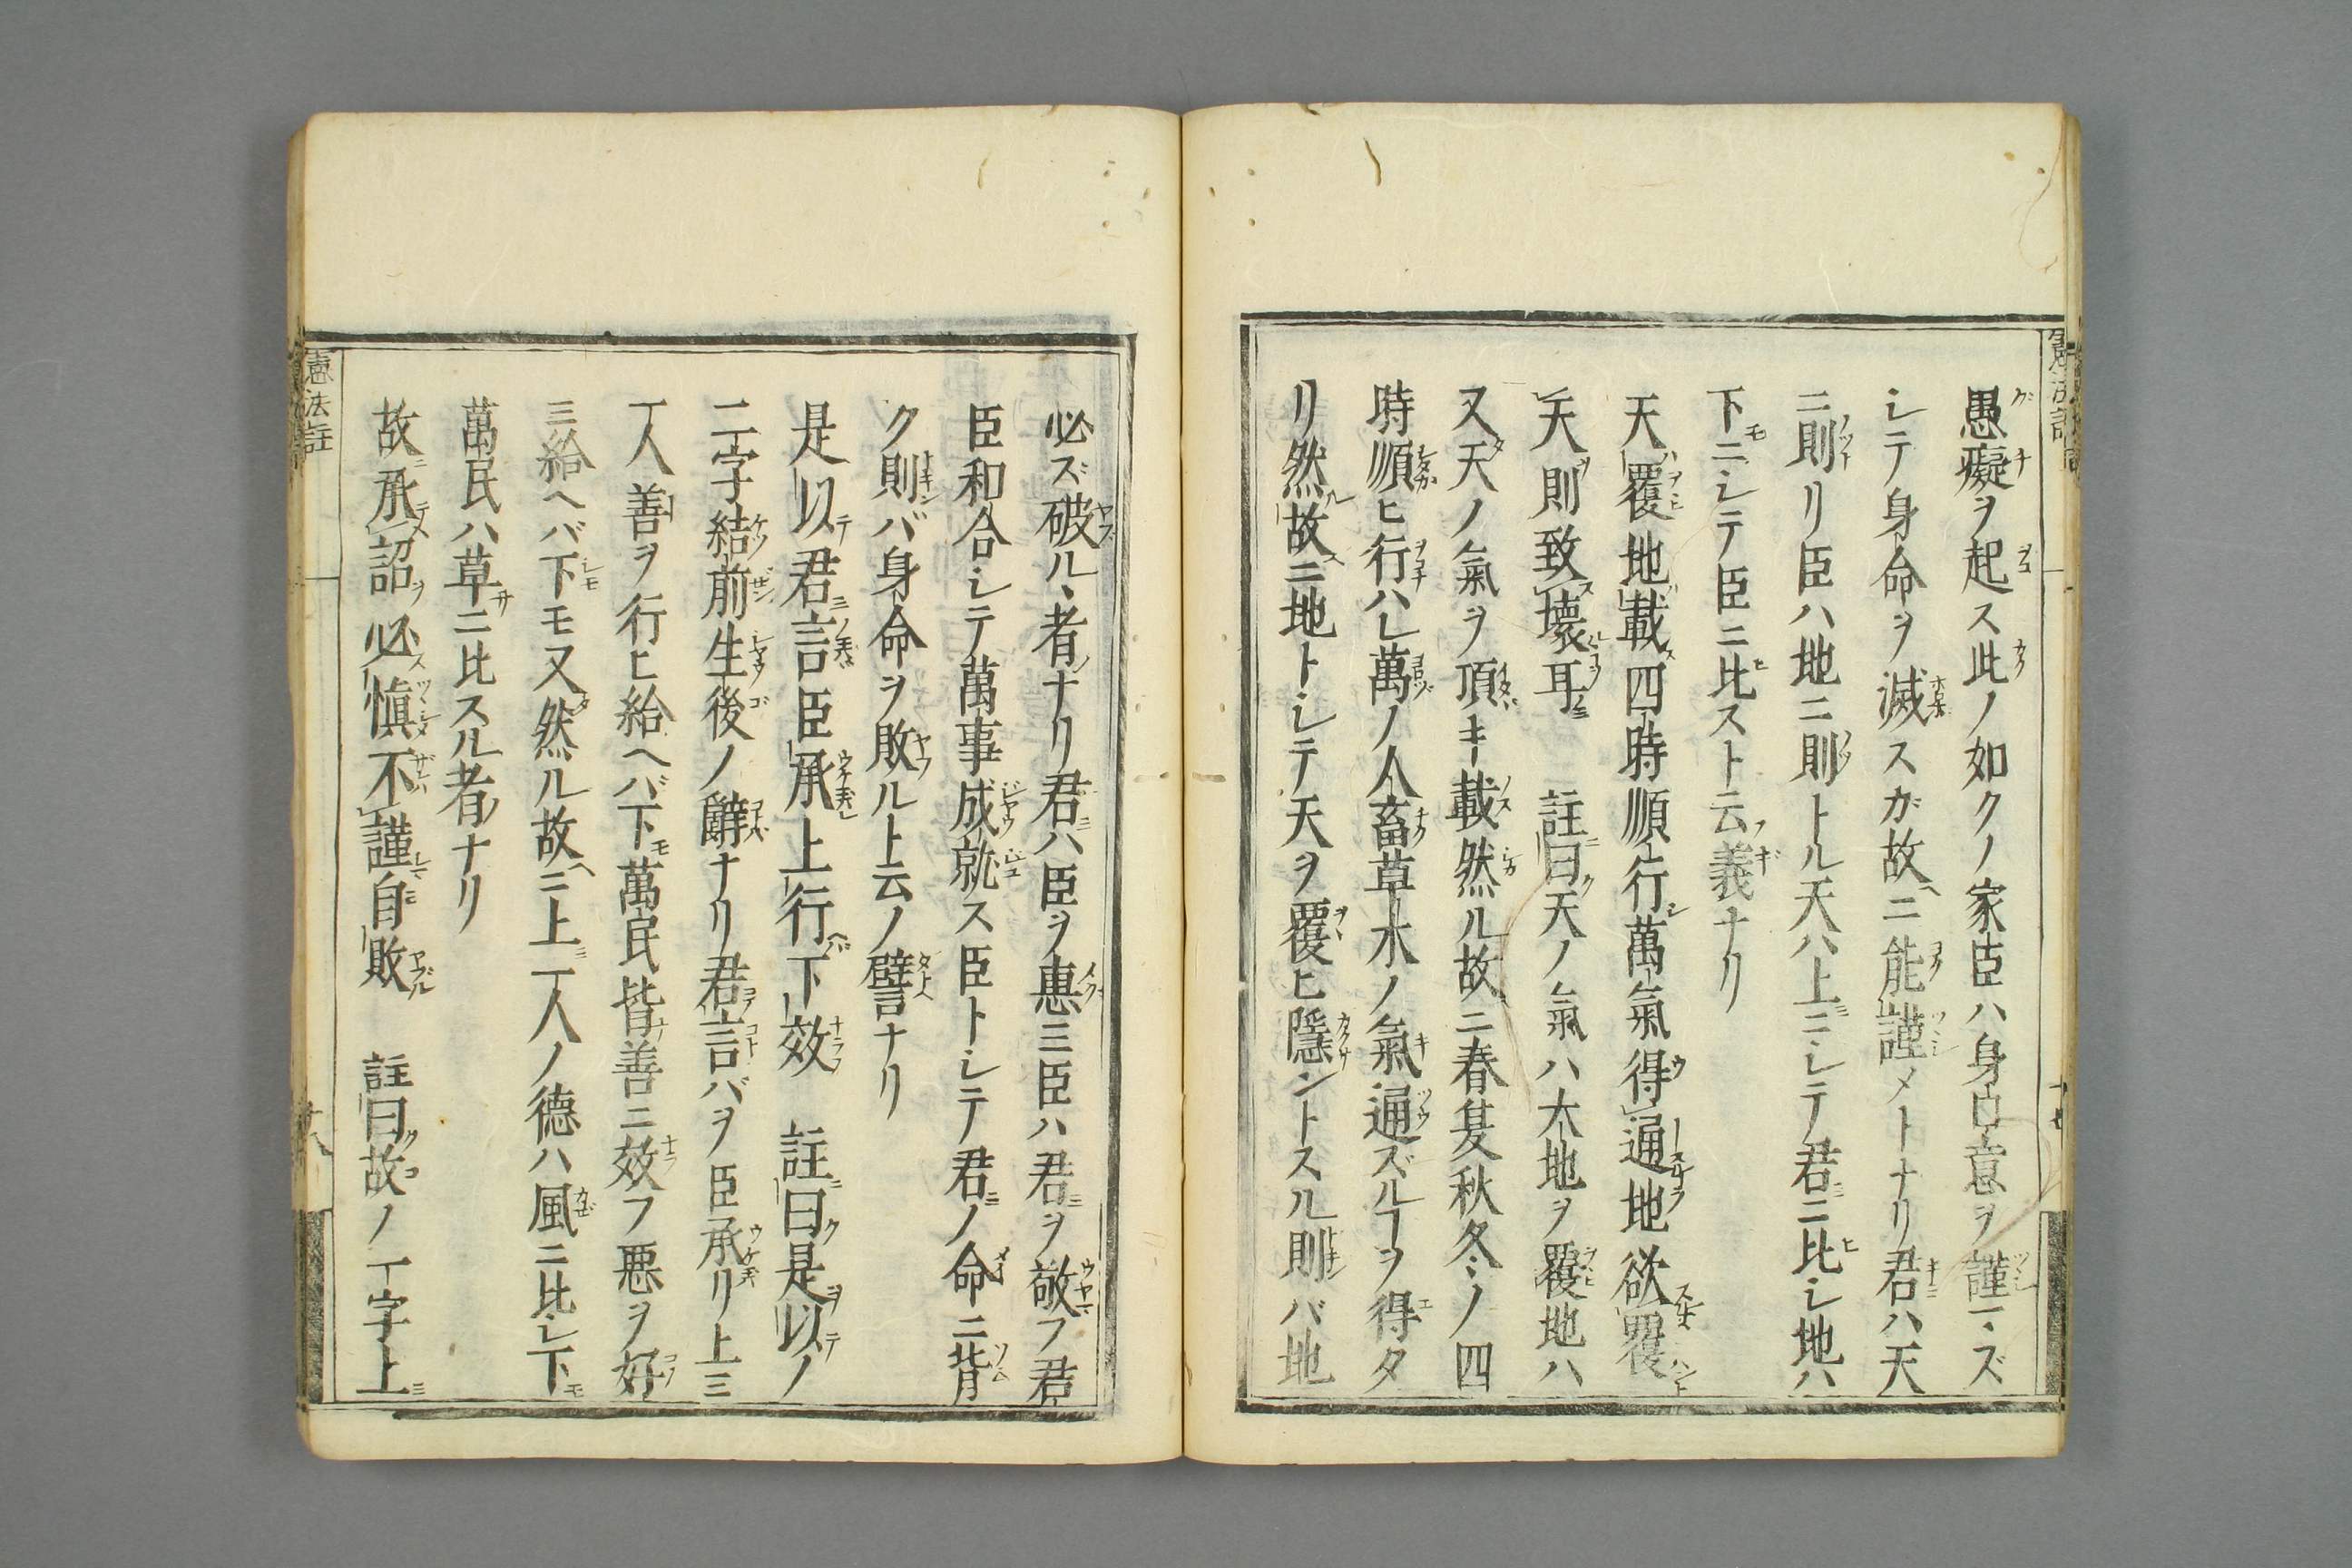 愚癡ヲ起ス此ノ如クノ家臣ハ身口意ヲ謹マズ
シテ身命ヲ滅スガ故ニ能謹メトナリ君ハ天
ニ則リ臣ハ地ニ則トル天ハ上ニシテ君ニ比シ地ハ
下ニシテ臣ニ比スト云義ナリ
天覆地載四時順行萬氣得通地欲覆
天則致壊耳　註曰天ノ氣ハ大地ヲ覆地ハ
又天ノ氣ヲ頂キ載然ル故ニ春夏秋冬ノ四
時順ヒ行ハレ萬ノ人畜草木ノ氣通ズルヿヲ得タ
リ然故ニ地トシテ天ヲ覆ヒ隱ントスル則バ地
必ズ破ル者ナリ君ハ臣ヲ惠ミ臣ハ君ヲ敬フ君
臣和合シテ萬事成就ス臣トシテ君ノ命ニ背
ク則バ身命ヲ敗ルト云ノ譬ナリ
是以君言臣承上行下效　註曰是以ノ
二字結前生後ノ辭ナリ君言バヲ臣承リ上ミ
一人善ヲ行ヒ給ヘバ下萬民皆善ニ效フ悪ヲ好
ミ給ヘバ下モ又然ル故ニ上一人ノ德ハ風ニ比シ下
萬民ハ草ニ比スル者ナリ
故承詔必愼不謹自敗　註曰故ノ一字上
憲法註